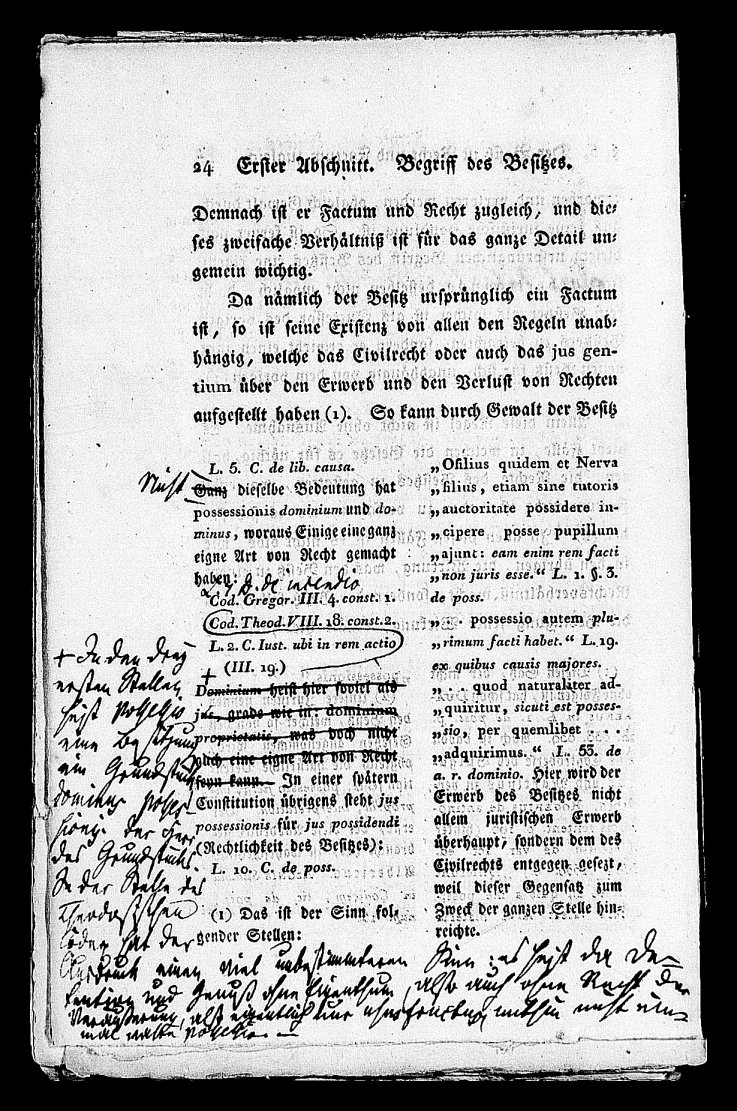 24 Erster Abschnitt. Begriff des Besitzes.
Demnach ist er Factum und Recht zugleich, und die-
ses zweifache Verhältniß ist für das ganze Detail un-
gemein wichtig.
Da nämlich der Besitz ursprünglich ein Factum
ist, so ist seine Existenz von allen den Regeln unab-
hängig, welche das Civilrecht oder auch das jus gen-
tium über den Erwerb und den Verlust von Rechten
aufgestellt haben (1). So kann durch Gewalt der Besitz
L. 5. C. de lib. causa.
Nicht
Ganz dieselbe Bedeutung hat
possessionis dominium und do-
minus, woraus Einige eine ganz
eigne Art von Recht gemacht
haben:
de incendio
Cod. Gregor. III. 4. const. 1.
Cod. Theod. VIII. 18. const. 2.
L. 2. C. Iust. ubi in rem actio
(III. 19.)
+
Dominium heist hier soviel als
jus, grade wie in: dominium
proprietatis, was doch nicht
auch eine eigne Art von Recht
seyn kann. In einer spätern
Constitution übrigens steht jus
possessionis für jus possidendi
(Rechtlichkeit des Besitzes):
L. 10. C. de poss.
(1) Das ist der Sinn fol-
gender Stellen:
„Ofilius quidem et Nerva
„filius, etiam sine tutoris
„auctoritate possidere in-
„cipere posse pupillum
„ajunt: eam enim rem facti
„non juris esse.“ L. 1. §. 3.
de poss.
„ . . possessio autem plu-
„rimum facti habet.“ L. 19.
ex quibus causis majores.
„ . . quod naturaliter ad-
„quiritur, sicuti est posses-
„sio, per quemlibet . . .
„adquirimus.“ L. 53. de
a. r. dominio. Hier wird der
Erwerb des Besitzes nicht
allem juristischen Erwerb
überhaupt, sondern dem des
Civilrechts entgegen gesezt,
weil dieser Gegensatz zum
Zweck der ganzen Stelle hin-
reichte.
+ In den drey
ersten Stellen
heist possessio
eine Besitzung
ein Grundstück
dominus posses-
sionis der Herr
des Grundstücks
In der Stelle des
Theodosischen
Codex hat der
Ausdruck einen viel unbestimmteren Sinn: es heist da De-
tention und Genuß ohne Eigenthum, also auch ohne Recht der
Veräußerung, also eigentlich nur ususfructus, mithin nicht ein-
mal wahre possessio. —